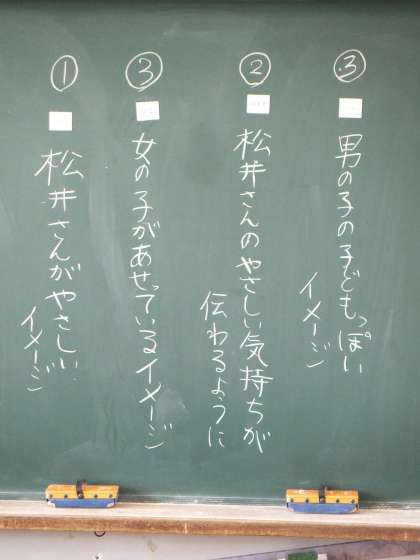 ③
男の子の子どもっぽい
イメージ
②
松井さんのやさしい気持ちが
伝わるように
③
女の子があせっているイメージ
①
松井さんがやさしい
イメージ